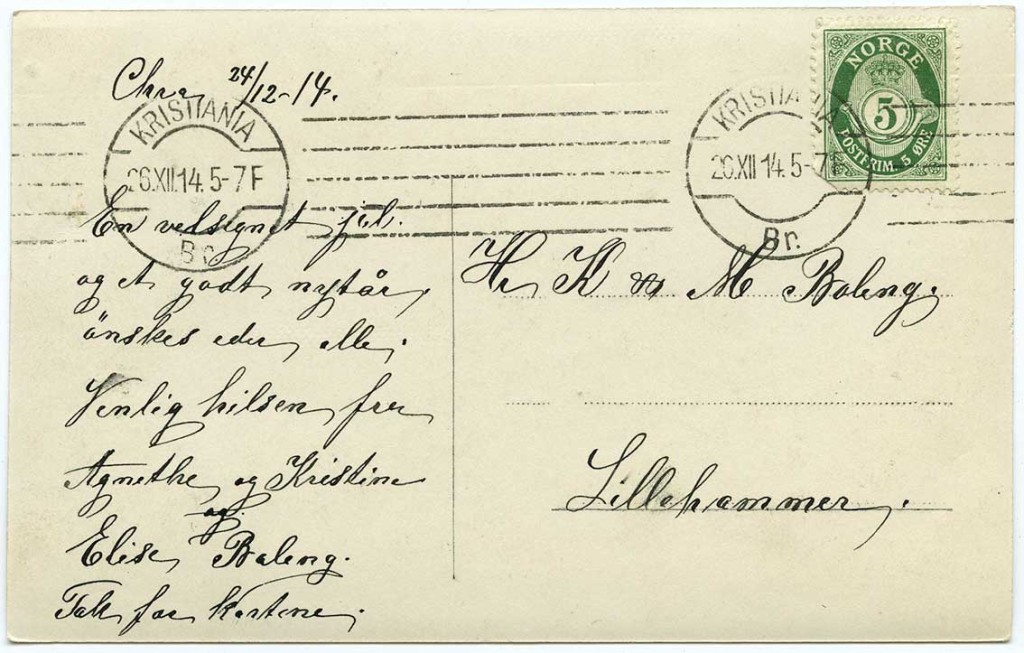 Chra 24/12-14.
KRISTIANIA
26.XII.14. 5-7 F
Br.
KRISTIANIA
26.XII.14. 5-7 F
Br.
NORGE
5
POSTFRIM. 5 ØRE
En velsignet jul.
og et godt nytår,
ønskes eder alle.
Venlig hilsen fra
Agnethe og Kristine
og
Elise Baleng.
Tak for kortene.
Hr K M Baleng.
Lillehammer.